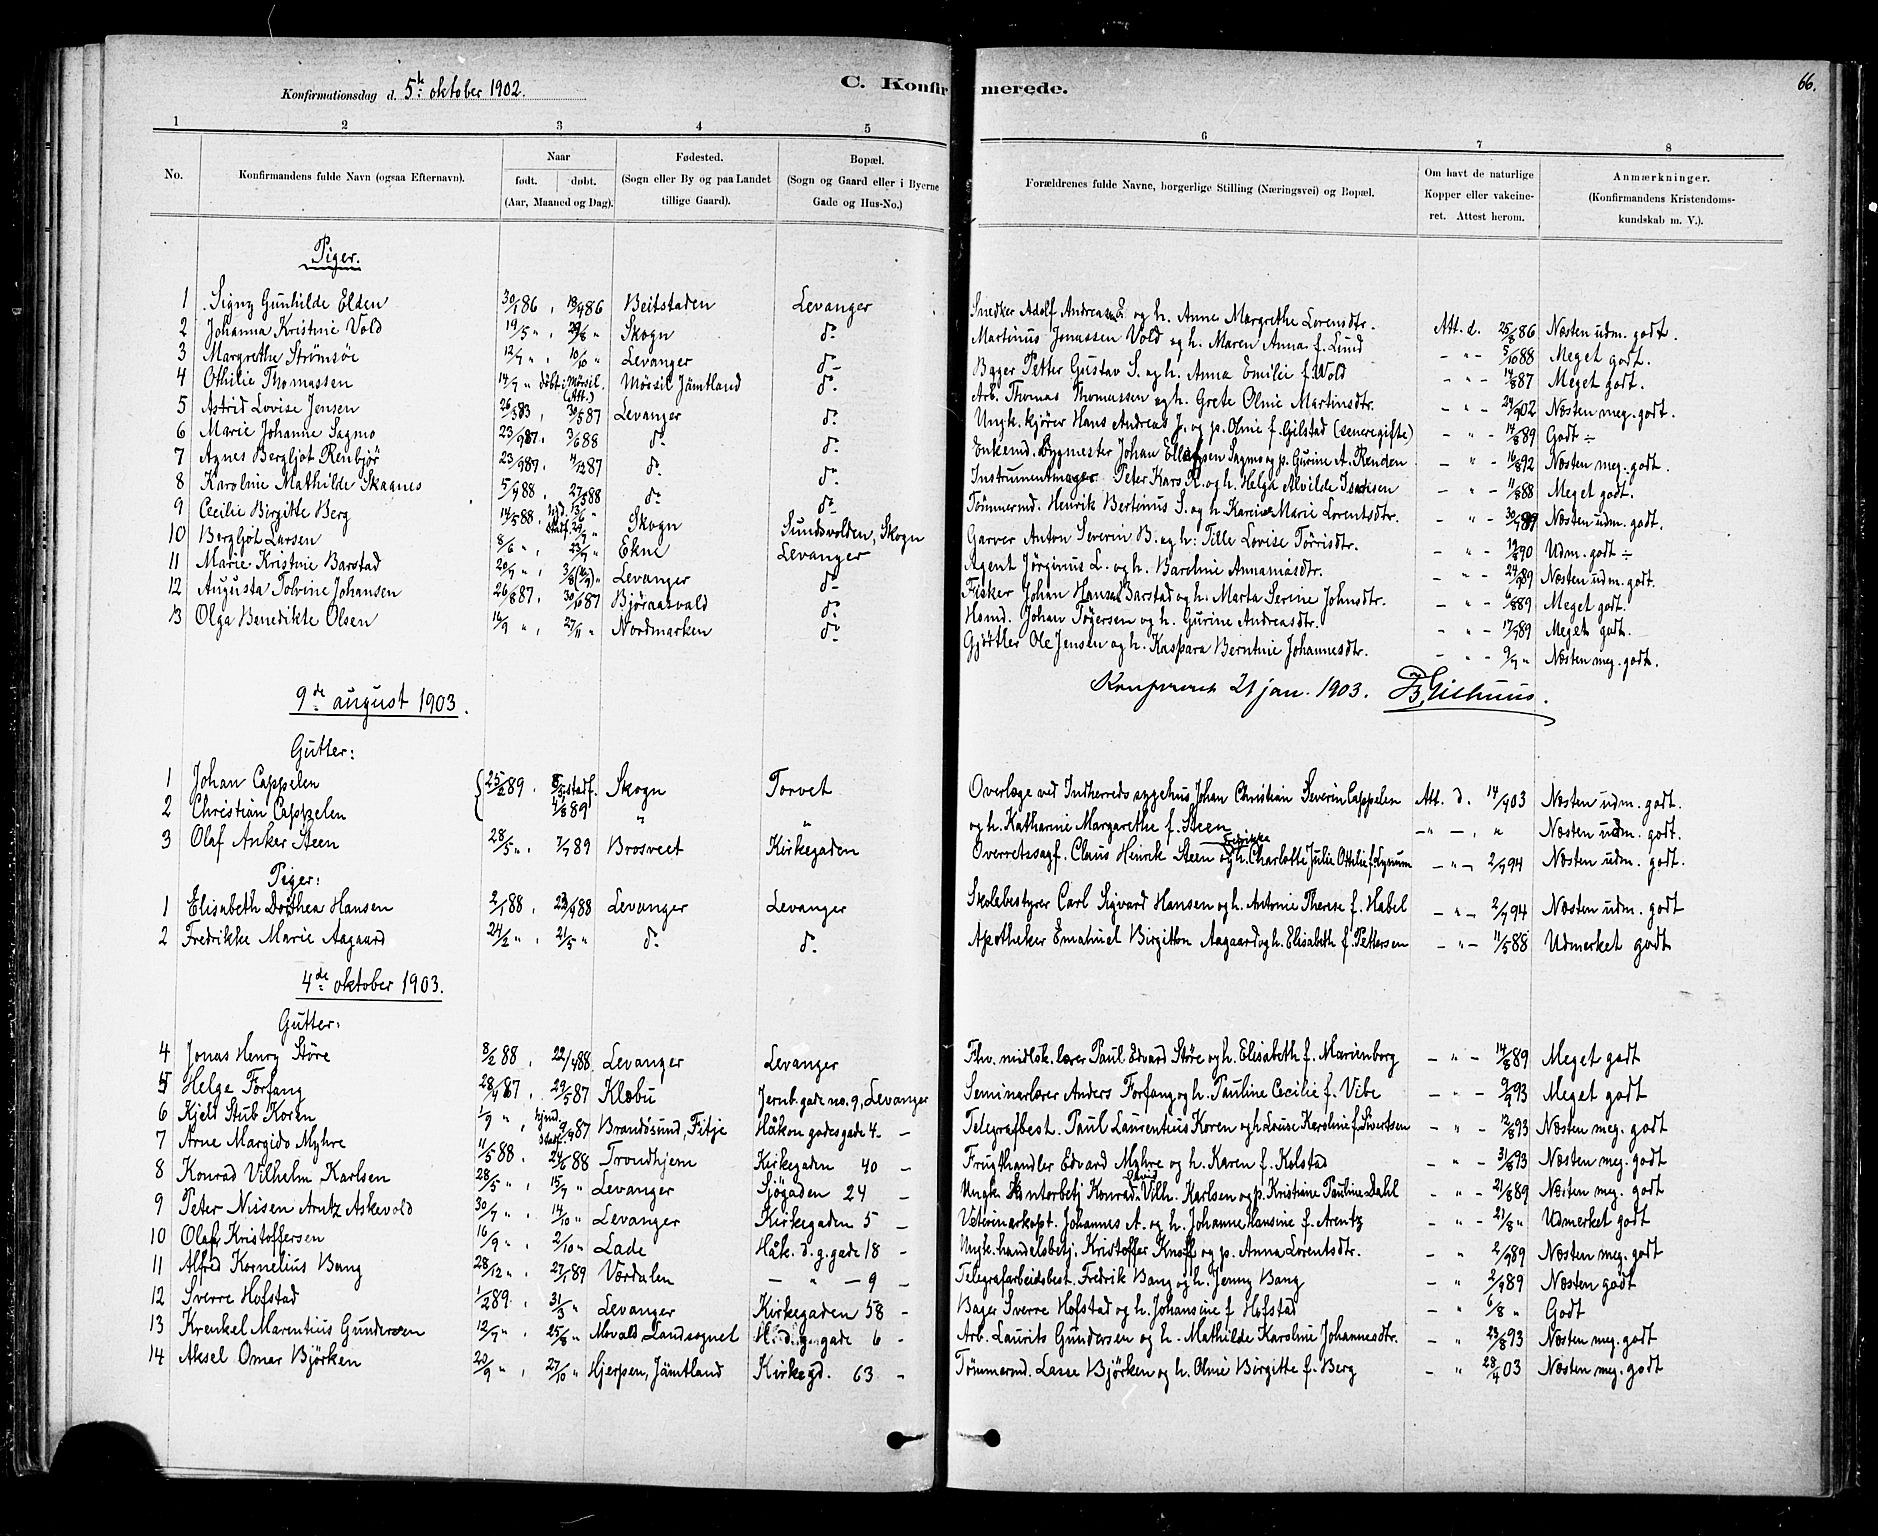 Konfirmationsdag d. 5te oktober 1902.
C. Konfirmerede.
66.
1 2 3 4 5 6 7 8
No.
Konfirmandens fulde Navn (ogsaa Efternavn).
Naar
født. døbt.
(Aar, Maaned og Dag).
Fødested.
(Sogn eller By og paa Landet
tillige Gaard).
Bopæl.
(Sogn og Gaard eller i Byerne
Gade og Hus-No.)
Forældrenes fulde Navne, borgerlige Stilling (Næringsvei) og Bopæl.
Om havt de naturlige
Kopper eller vakcine-
ret. Attest herom.
Anmærkninger.
(Konfirmandens Kristendoms-
kundskab m. V.).
Piger.
1 Signy Gunhilde Elden 30/1 86, 18/4 86 Beitstaden Levanger Snedker Adolf Andreas E. og h. Anne Margrethe Lorensdtr. Att. d. 25/8 86 Næsten udm. godt.
2 Johanna Kristine Vold 19/5 " , 29/8 " Skogn do Martinus Jonassen Vold og h. Maren Anna f. Lund - " - 5/10 88 Meget godt.
3 Margrethe Strømsøe 12/7 " , 10/10 " Levanger do Bager Petter Gustav S. og h. Anna Emilie f. Wold - " - 14/8 87 Meget godt.
4 Othilie Thomassen 14/7 " døbt i Mørsil. (Att.) Mørsil Jämtland do Arb. Thomas Thomassen og h. Grete Oline Martinsdtr. - " - 24/9 02 Næsten meg. godt.
5 Astrid Lovise Jensen 26/5 83, 30/5 87 Levanger do Ungk. kjører Hans Andreas J. og p. Oline f. Gilstad (senere gifte) - " - 14/8 89 Godt ÷
6 Marie Johanne Sagmo 23/9 87, 3/6 88 do do Enkemd. Bygmester Johan Ellingsen Sagmo og p. Gurine A. Renden - " - 16/8 92 Næsten meg. godt.
7 Agnes Bergljot Renbjør 23/9 87, 4/12 87 do do Instrumentmager Peter Kars R. og h. Helga Alvilde Isaksen - " - 11/8 88 Meget godt.
8 Karoline Mathilde Skagnes 5/4 88, 27/5 88 do do Tömmermd. Henrik Bertinus S. og h. Karine Marie Lorentsdtr. - " - 30/7 89 Næsten udm. godt.
9 Cecilie Birgitte Berg 14/5 88, Skogn Sundsvolden, Skogn Garver Anton Severin B. og h. Tille Lovise Törrisdtr. - " - 19/8 90 Udm. godt ÷
10 Bergljot Larsen 8/6 " , 23/7 " Ekne Levanger Agent Jörginus L. og h. Baroline Annamasdtr. - " - 24/9 89 Næsten udm. godt.
11 Marie Kristine Barstad 20/7 " , 3/8 " Levanger do Fisker Johan Hansen Barstad og h. Marta Serine Johnsdtr. - " - 6/8 89 Meget godt.
12 Augusta Tolvine Johansen 26/8 87, 30/10 87 Bjøraasvald do Hsmd. Johan Tøgersen og h. Gurine Andreasdtr. - " - 17/7 89 Meget godt.
13 Olga Benedikte Olsen 16/9 " , 27/11 " Nordmarken do Gjörtler Ole Jensen og h. Kaspara Berntine Johannesdtr. - " - 9/7 " Næsten meg. godt.
Konfereret 21 jan. 1903.
9de august 1903.
Gutter:
1 Johan Cappelen 25/2 89, stadf. 4/8 89 Skogn Torvet Overlæge ved Indherreds sygehus Johan Christian Severin Cappelen Att. d. 14/7 03 Næsten udm. godt.
2 Christian Cappelen " " og h. Katharine Margarethe f. Steen - " - , " Næsten udm. godt.
3 Olaf Anker Steen 28/5 " , 7/7 89 Brosveet Kirkegaden Overretssagf. Claus Heinrik Steen og h. Charlotte Julie Ottilie f. Lynum - " - 2/7 94 Næsten udm. godt.
Piger:
1 Elisabeth Dorthea Hansen 2/1 88, 23/9 88 Levanger Levanger Skolebestyrer Carl Sigvard Hansen og h. Antonie Therese f. Habel - " - 2/7 94 Næsten udm. godt
2 Fredrikke Marie Aagaard 24/2 " , 21/5 " do do Apotheker Emanuel Birgitton Aagaard og h. Elisabeth f. Pettersen - " - 11/5 88 Udmerket godt
4de oktober 1903.
Gutter:
4 Jonas Henry Støre 8/2 88, 22/4 88 Levanger Levanger Fhv. midlsk. lærer Paul Edvard Støre og h. Elisabeth f. Marienborg - " - 14/8 89 Meget godt
5 Helge Forfang 28/4 87, 29/5 87 Klæbu Jernb. gade no. 9, Levanger Seminarlærer Anders Forfang og h. Pauline Cecilie f. Vibe - " - 9/9 93 Meget godt
6 Kjell Stub Koren 1/9 " , hjmd. stadf. 9/9 87 Brandøsund, Fitje Håkon gades gade 4 - Telegrafbest. Paul Laurentius Koren og h. Louise Karoline f. Sivertsen - " - 12/8 93 Næsten meg. godt
7 Arne Margido Myhre 11/5 88, 24/6 88 Trondhjem Kirkegaden 40 - Frugthandler Edvard Myhre og h. Karen f. Kolstad - " - 31/8 93 Næsten meg. godt
8 Konrad Vilhelm Karlsen 28/5 " , 15/7 " Levanger Sjøgaden 24 - Ungk. kontorbetj. Konrad David Vilh. Karlsen og p. Kristine Pauline Dahl - " - 21/8 89 Næsten meg. godt
9 Peter Nissen Arntz Askevold 30/7 " , 14/10 " Levanger Kirkegaden 5 - Veterinærkapt. Johannes A. og h. Johanne Hansine f. Arentz - " - 21/8 " Udmerket godt
10 Olaf Kristoffersen 16/9 " , 2/10 " Lade Håk. d. g. gade 18 - Ungk. handelsbetj. Kristoffer Knoff og p. Anna Lorentsdtr. - " 2/9 89 Næsten meg. godt
11 Alfred Kornelius Bang 28/12 " , 27/1 89 Værdalen - " - 9 - Telegrafarbeidsbest. Fredrik Bang og h. Jenny Bang - " 2/9 89 Næsten godt
12 Sverre Hofstad 1/2 89, 31/3 " Levanger Kirkegaden 58 - Bager Sverre Hofstad og h. Johansine f. Hofstad - " 6/8 " Godt
13 Krenkel Marentius Gundersen 12/7 " , 25/8 " Movald Landsognet H. d. g. gade 6 - Arb. Laurits Gundersen og h. Mathilde Karoline Johannesdtr. - " 23/8 93 Næsten meg. godt
14 Aksel Omar Bjørken 20/9 " , 27/10 " Hjerpen, Jämtland Kirkegd. 63 - Tømmermd. Lasse Bjørken og h. Oline Birgitte f. Berg - " 28/4 03 Næsten meg. godt